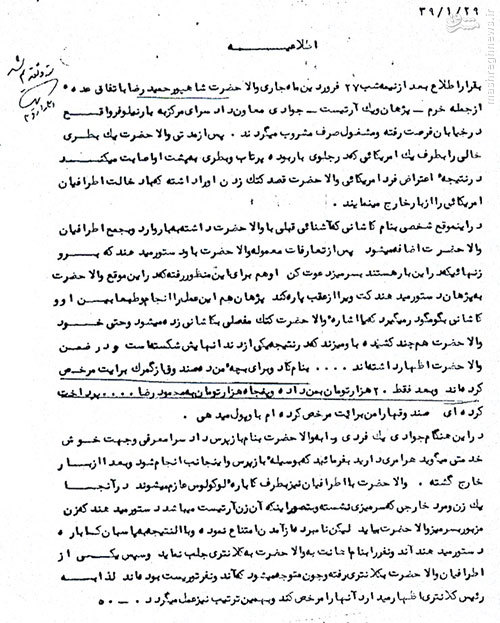 ۳۹/۱/۲۹
اطلاعیـــــــه
بقرار اطلاع بعد از نیمه شب ۲۷ فروردین ماه جاری والا حضرت شاهپور حمید رضا باتفاق عده
از جمله خرم ـ پژمان ویک آرتیست ـ جوادی معاون داد سرای مرکز به بار نیلوفر واقع
در خیابان فرصت رفته ومشغول صرف مشروب میگردند . پس از مدتی والا حضرت یک بطری
خالی را بطرف یک آمریکائی که در جلوی بار بوده پرتاب وبطری به پشت او اصابت میکنـــد
در نتیجه اعتراض فرد آمریکائی والا حضرت قصد کتک زدن اورا داشته که با دخالت اطرافیان
آمریکائی را از بار خارج مینمایند .
در این موقع شخصی بنام کاشانی که آشنائی قبلی با والا حضرت داشته به بار وارد وبجمع اطرافیان
والا حضرت اضافه میشود پس از تعارفات معموله والا حضرت باو دستور میدهند که بـــرو
زنهائیکه در این بار هستند بسر میز دعوت کن او هم برای این منظور رفته که در این موقع والا حضرت
به پژمان دستور میدهند کت ویرا از عقب پاره کند پژمان هم این عمل را انجام وطبعا بیـــن او و
کاشانی بگومگو در میگیرد که با اشاره والا حضرت کتک مفصلی بکاشانی زده میشود وحتی خـــود
والا حضرت هم چند کشیده باو میزند که در نتیجه یکی از دندانهایش شکسته است و در ضمن
والا حضرت اظهار داشته اند .... بنام کادو برای بچه من ده صندوق از گمرک برایت مرخص
کرده اند وبعد فقط ۲۰ هزار تومان بمن داده و پنجاه هزار تومان به محمود رضا .... پرداخت
کرده ای صندوقها را من برایت مرخص کرده ام باو پول میدهی .
در این هنگام جوادی یک فردی را به والا حضرت بنام بازپرس داد سرا معرفی وجهت خـــوش
خدمتی میگوید هر امری دارید بفرمائید که بوسیله بازپرس واینجانب انجام شود وبعد از بـــار
خارج گشته . والا حضرت با اطرافیان نیز بطرف کاباره لوکولوس عازم میشوند در آنجـــا
یک زن ومرد خارجی که سر میزی نشسته وبتصور اینکه آن زن آرتیست میباشد دستور میدهند که زن
مزبور بسر میز والا حضرت بیاید لیکن نامبرده از آمدن امتناع نموده وبالنتیجه به پاسبان کاباره
دستور میدهند آن دو نفر را بنام اهانت به والا حضرت به کلانتری جلب نماید وسپس یکـــی از
اطرافیان والا حضرت بکلانتری رفته وچون متوجه میشود که آن دو نفر توریست بوده اند لذا بـــه
رئیس کلانتری اظهار میدارد آنها را مرخص کند وبهمین ترتیب نیز عمل میگردد . ـ ۵۰
mashreghnews.ir